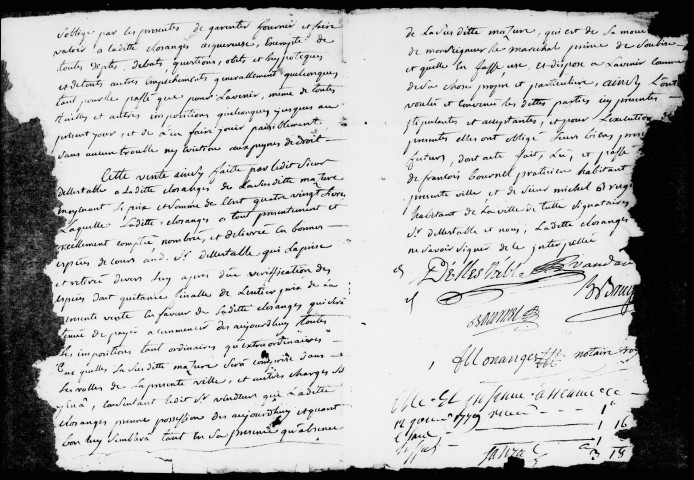 s'oblige par les presentes de garentir fournir et faire
valoir a laditte closanges acquereuse, Exempte de
toutes deptes, debats, questions, obits et hypoteques
et de touts autres empechements generallement quelconques,
tant pour le passé que pour L'avenir, meme de toutes
tailles et autres impositions quelconques jusques au
present jour, et de L'en faire jouir paisiblement
sans aucun trouble ny eviction aux peynes de droit
Cette vente ainsy faitte par ledit Sieur
dellestable a laditte closanges de La susditte mature
moyenant le prix et somme de Cent quatre vingt livres
Laquelle Laditte closanges a tout presentement et
reellement compté nombré, et delivrée En bonnes
especes de cours aud. Sr. dellestable qui La prise
et retirée devers luy apres due veriffication des
especes dont quitance finalle de L'entier prix de la
presente vente En faveur de Laditte closanges qui sera
tenue de payer a commencer des aujourd'huy toutes
les impositions tant ordinaires qu'extraordinaires
que quelles La susditte mature sera comprise dans
les rolles de La presente ville, et autres charges
consentant ledit Sr. vendeur que Laditte
closanges prenne possession des aujourdhuy et quant
bon luy semblera tant en sa presence qu'absence
de La susditte mature, qui est de La mouvance
de monseigneur le marechal prince de Soubise
et qu'elle En fasse use, et dispose a L'avenir comme
de sa chose propre et particuliere, ainsy L'ont
voulu et convenu les dittes parties icy presentes
stipulantes et acceptantes, et pour L'execution
presentes elles ont obligé Leurs biens presents
futurs, dont acte fait, Lu, et passé
de francois Bournel praticien habitant
presente ville et de Sieur michel
habitant de La ville de tulle
Sr. dellestable et nous, Laditte closanges
ne savoir signer de ce interpellée
Dellestable
Bournel
notaire
1779
1 16
3 18